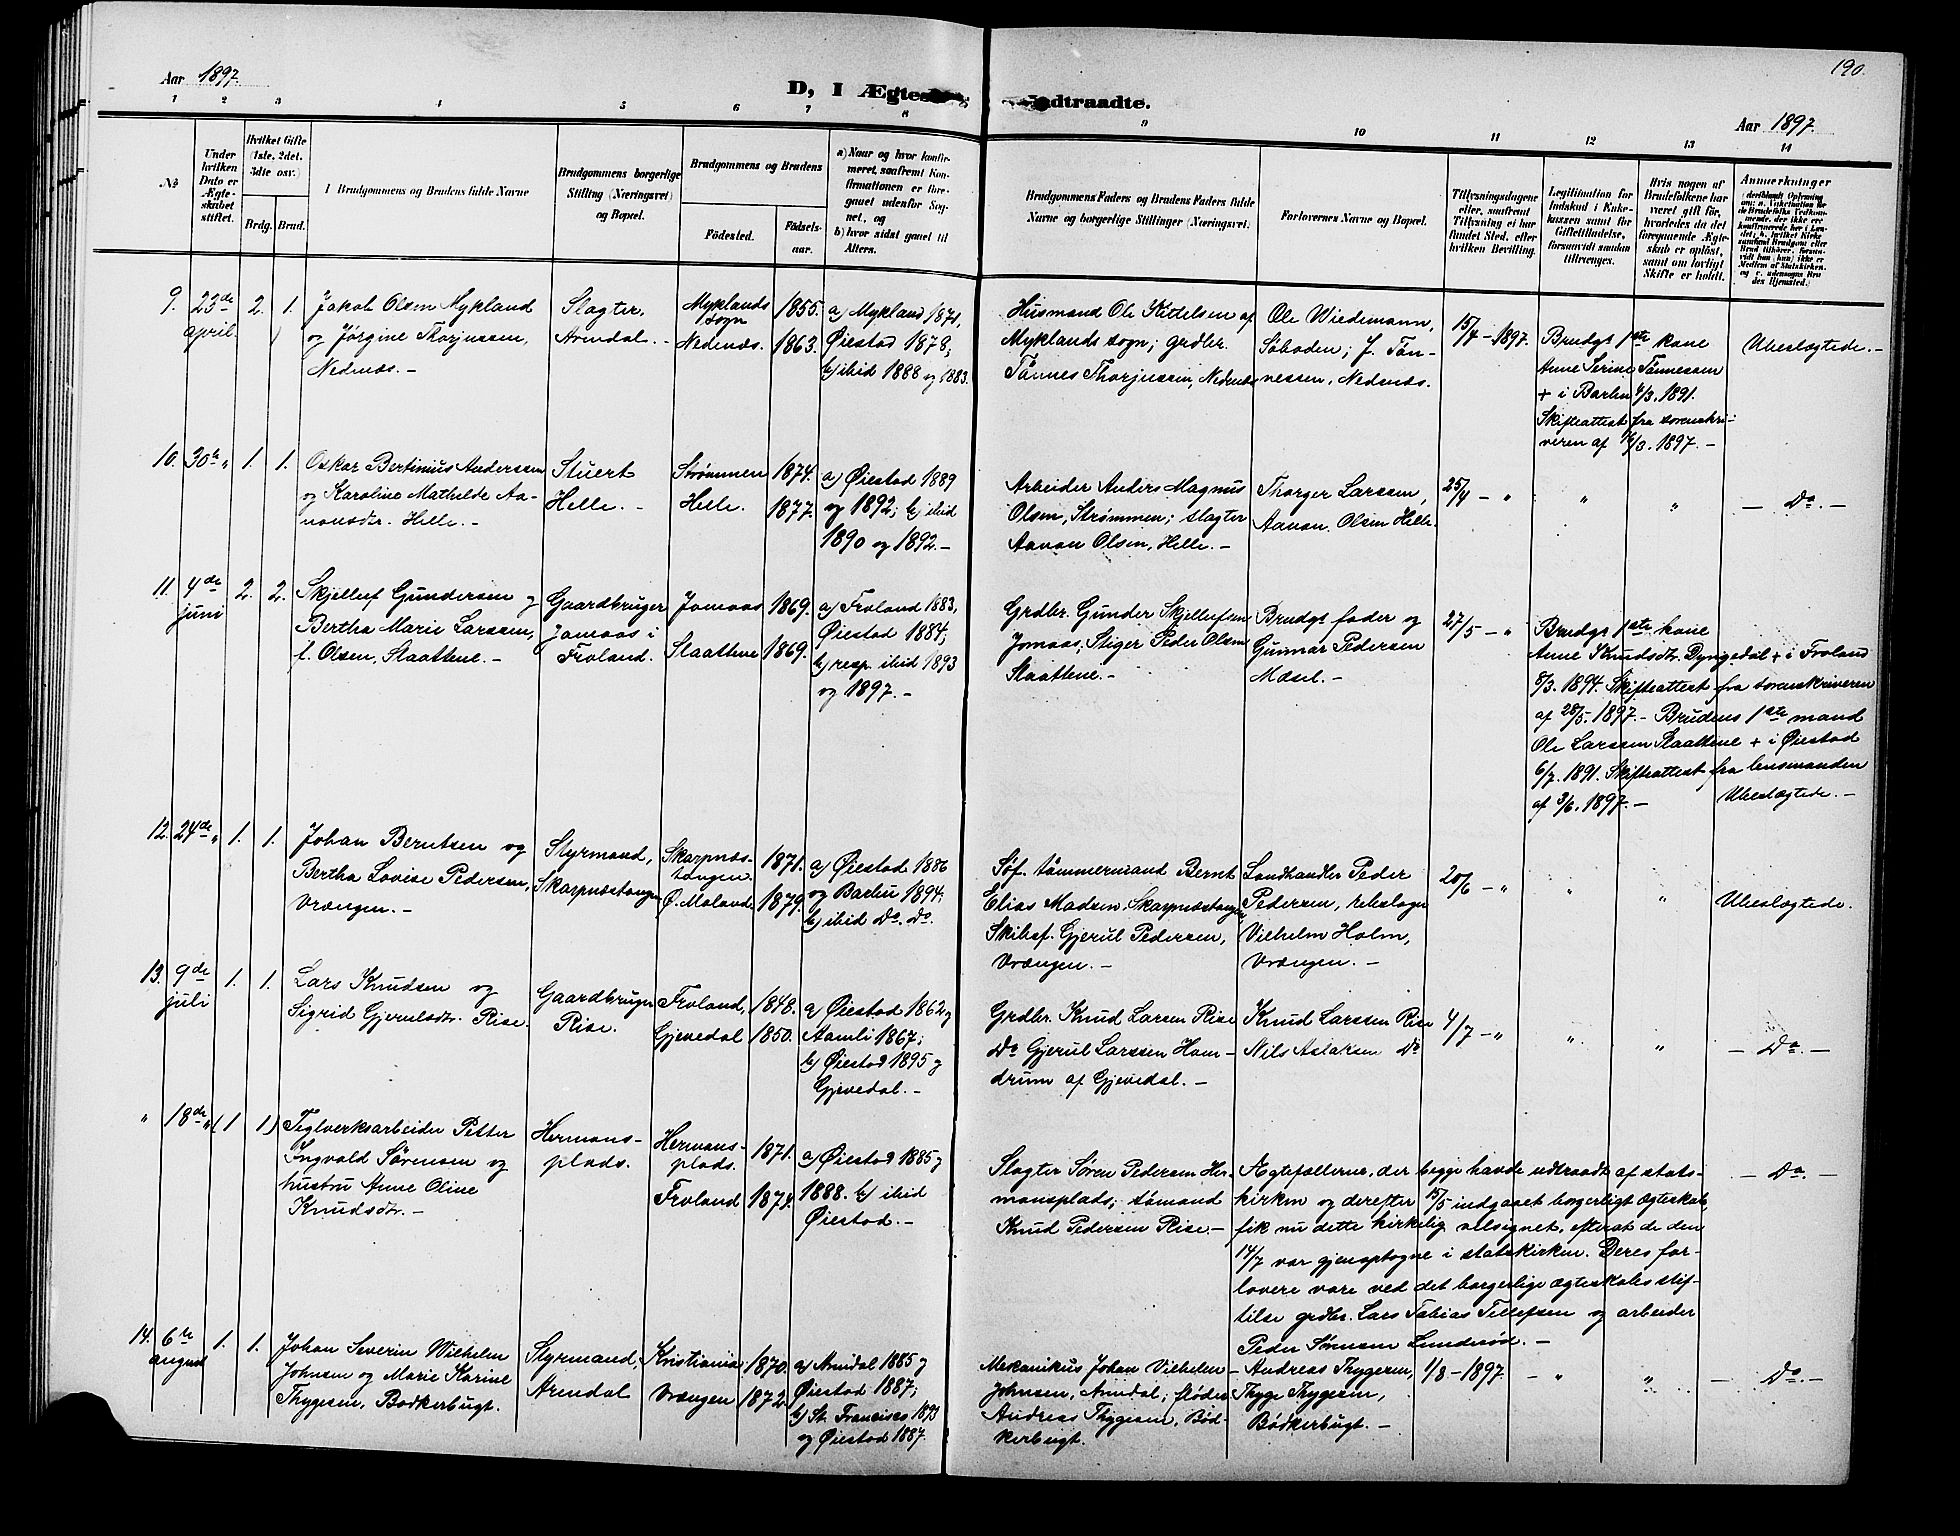 190.
Aar 1897.
D, I Ægtes
ndtraadte.
Aar 1897.
1 2 3 4 5 6 7 8 9 10 11 12 13 14
№
Under hvilken Dato er Ægteskabet stiftet.
Hvilket Gifte (1ste, 2det, 3die osv.)
Brdg. Brud.
Brudgommens og Brudens fulde Navne
Brudgommens borgerlige Stilling (Næringsvei) og Bopæl.
Brudgommens og Brudens
Fødested.
Fødselsaar.
a) Naar og hvor konfirmeret, saafremt Konfirmationen er foregaaet udenfor Sognet, og
b) hvor sidst gaaet til Alters.
Brudgommens Faders og Brudens Faders fulde Navne og borgerlige Stillinger (Næringsvei.
Forlovernes Navne og Bopæl.
Tillysningsdagene eller, saafremt Tillysning ei har fundet Sted, efter hvilken Bevilling.
Legitimation for Indskud i Enkekassen samt for Giftetilladelse, forsaavidt saadan tiltrænges.
Hvis nogen af Brudefolkene har været gift før, hvorledes da det foregaaende Ægteskab er opløst, samt om lovligt Skifte er holdt.
Anmerkninger
9. 23de april 2. 1.
Jakob Olsen Mykland
og Jørgine Thorjussen,
Nedenæs. –
Slagter,
Arendal. –
Myklands sogn
Nedenæs.
1855.
1863.
a) Mykland 1871,
Øiestad 1878;
b) ibid 1888 og 1883.
Husmand Ole Kittelsen af
Myklands sogn; grdbr.
Tønnes Thorjussen, Nedenæs
Ole Wiedemann,
Søboden; J. Tøn-
nessen, Nedenæs.
15/4 – 1897.
Brudgs 1ste kone
Anne Serine Tønnessen
+ i Barbu 4/3. 1891.
Skifteattest fra sorenskri-
veren af 16/3. 1897. –
Ubeslægtede. –
10. 30te " 1. 1.
Oskar Bertinius Anderssen
og Karoline Mathilde Aa-
nonsdtr. Helle. –
Stuert
Helle. –
Strømmen
Helle.
1874.
1877.
a) Øiestad 1889
og 1892; b) ibid
1890 og 1892. –
Arbeider Anders Magnus
Olsen, Strømmen; slagter
Aanon Olsen, Helle. –
Thorger Larssen,
Aanon Olsen Helle.
25/4 – "
" "
– Do. –
11. 4de juni 2. 2.
Skjellef Gundersen og
Bertha Marie Larssen,
f. Olsen, Slaattene. –
Gaardbruger
Jomaas i
Froland.
Jomaas
Slaattene
1869.
1869.
a) Froland 1883,
Øiestad 1884;
b) resp. ibid 1893
og 1897. –
Grdbr. Gunder Skjellefsen
Jomaas, Stiger Peder Olsen
Slaattene. –
Brudgs fader og
Gunnar Pedersen
Mæsel. –
27/5 – "
Brudgs 1ste kone
Anne Knudsdtr. Dyngedal + i Froland
8/3. 1894. Skifteattest fra sorenskriveren
af 28/5. 1897. – Brudens 1ste mand
Ole Larssen Slaattene + i Øiestad
6/7. 1891. Skifteattest fra lensmanden
af 3/6. 1897. –
Ubeslægtede. –
12. 24de " 1. 1.
Johan Berntsen og
Bertha Lovise Pedersen,
Vrængen. –
Styrmand,
Skarpnæstangen
Skarpnæs-
tangen.
Ø. Moland
1871.
1879.
a) Øiestad 1886
og Barbu 1894;
b) ibid Do. Do.
Søf. tømmermand Bernt
Elias Madsen, Skarpnæstangen,
Skibsf. Gjerul Pedersen,
Vrængen. –
Landhandler Peder
Pedersen, rebslager
Vilhelm Holm,
Vrængen. –
20/6 – "
" "
Ubeslægtede.
13. 9de juli 1. 1.
Lars Knudsen og
Sigrid Gjerulsdtr. Rise.
Gaardbruger
Rise.
Froland,
Gjevedal
1848.
1850.
a) Øiestad 1862 og
Aamli 1867;
b) Øiestad 1895 og
Gjevedal. –
Grdbr. Knud Larsen Rise
Do Gjerul Larssen Hom-
drum af Gjevedal. –
Knud Larssen Rise
Nils Aslaksen Do
4/7 – "
" "
– Do. –
" 18de " (1 1)
Teglverksarbeider Petter
Ingvald Sørensen og
hustru Anne Oline
Knudsdtr. –
Hermans-
plads.
Hermans-
plads.
Froland
1871.
1874.
a) Øiestad 1885 og
1888. b) ibid
Øiestad. –
Slagter Søren Pedersen Her-
mansplads; tømand
Knud Pedersen Rise. –
Ægtefællerne, der begge havde udtraadt af stats-
kirken og derefter 15/5 indgaaet borgerligt ægteskab,
fik nu dette kirkelig velsignet, efterat de den
14/7 var gjenoptagne i statskirken. Deres for-
lovere vare ved det borgerlige ægteskabs stif-
telse grdbr. Lars Tobias Tellefsen og arbeider
Peder Sørensen Lunderød. –
– Do –
14. 6te august 1. 1.
Johan Severin Wilhelm
Johnsen og Marie Karine
Thygesen, Bødkerbugt.
Styrmand,
Arendal
Kristiania
Vrængen
1870.
1872.
a) Arendal 1885 og
Øiestad 1887;
b) St. Francisco 1893
og Øiestad 1887.
Mekanikus Johan Vilhelm
Johnsen, Arendal; fløder
Andreas Thygesen, Bød-
kerbugt.
Andreas Thygesen,
Thyge Thygesen,
Bødkerbugt. –
1/8 – 1897.
– " "
– Do. –